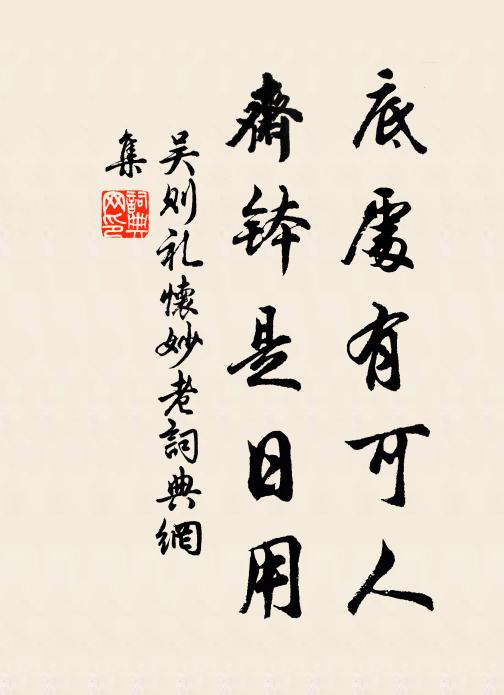 底處有可人
齋鉢是日用
吴则礼懷妙老詞典網
集
詞典
网印